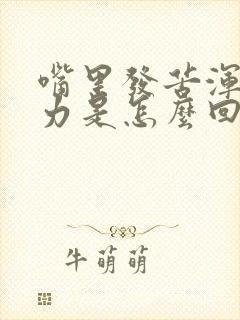 嘴里發苦渾
力是怎麼回
牛萌萌